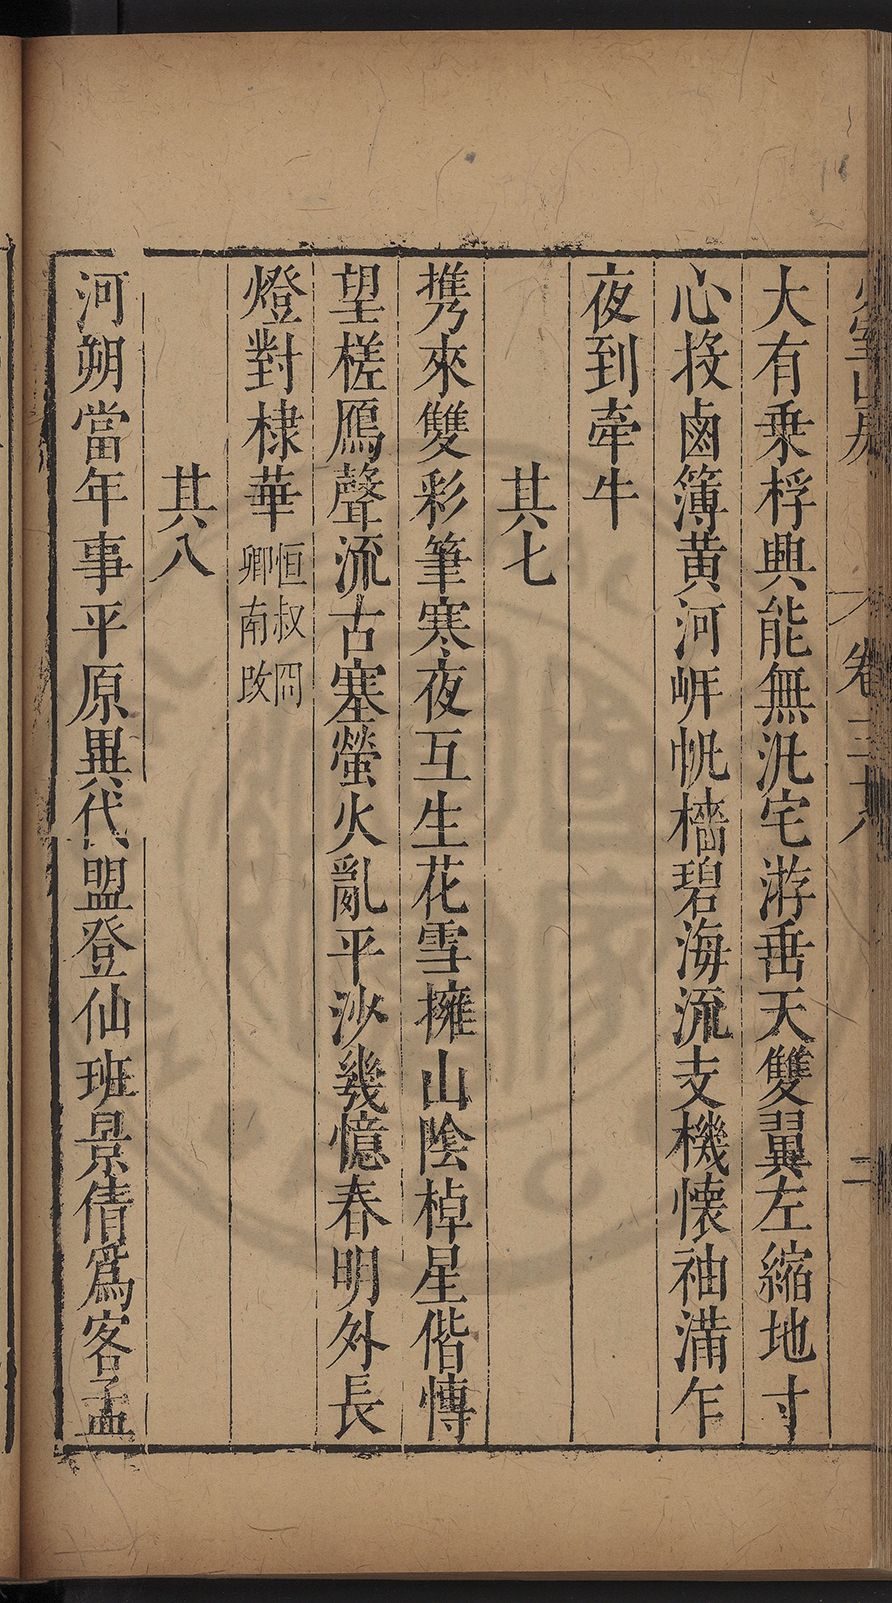 大有乗桴興能無汎宅游垂天雙翼左縮地寸
心投鹵簿黄河岍帆檣碧海流支機懐袖滿乍
夜到牽牛
其七
携來雙彩筆寒夜互生花雪擁山陰棹星偕博
望槎鴈聲流古塞螢火亂平沙幾憶春明外長
燈對棣華恒叔冏卿南改
其八
河朔當年事平原異代盟登仙班景倩爲客孟
室山房
卷三十八
二